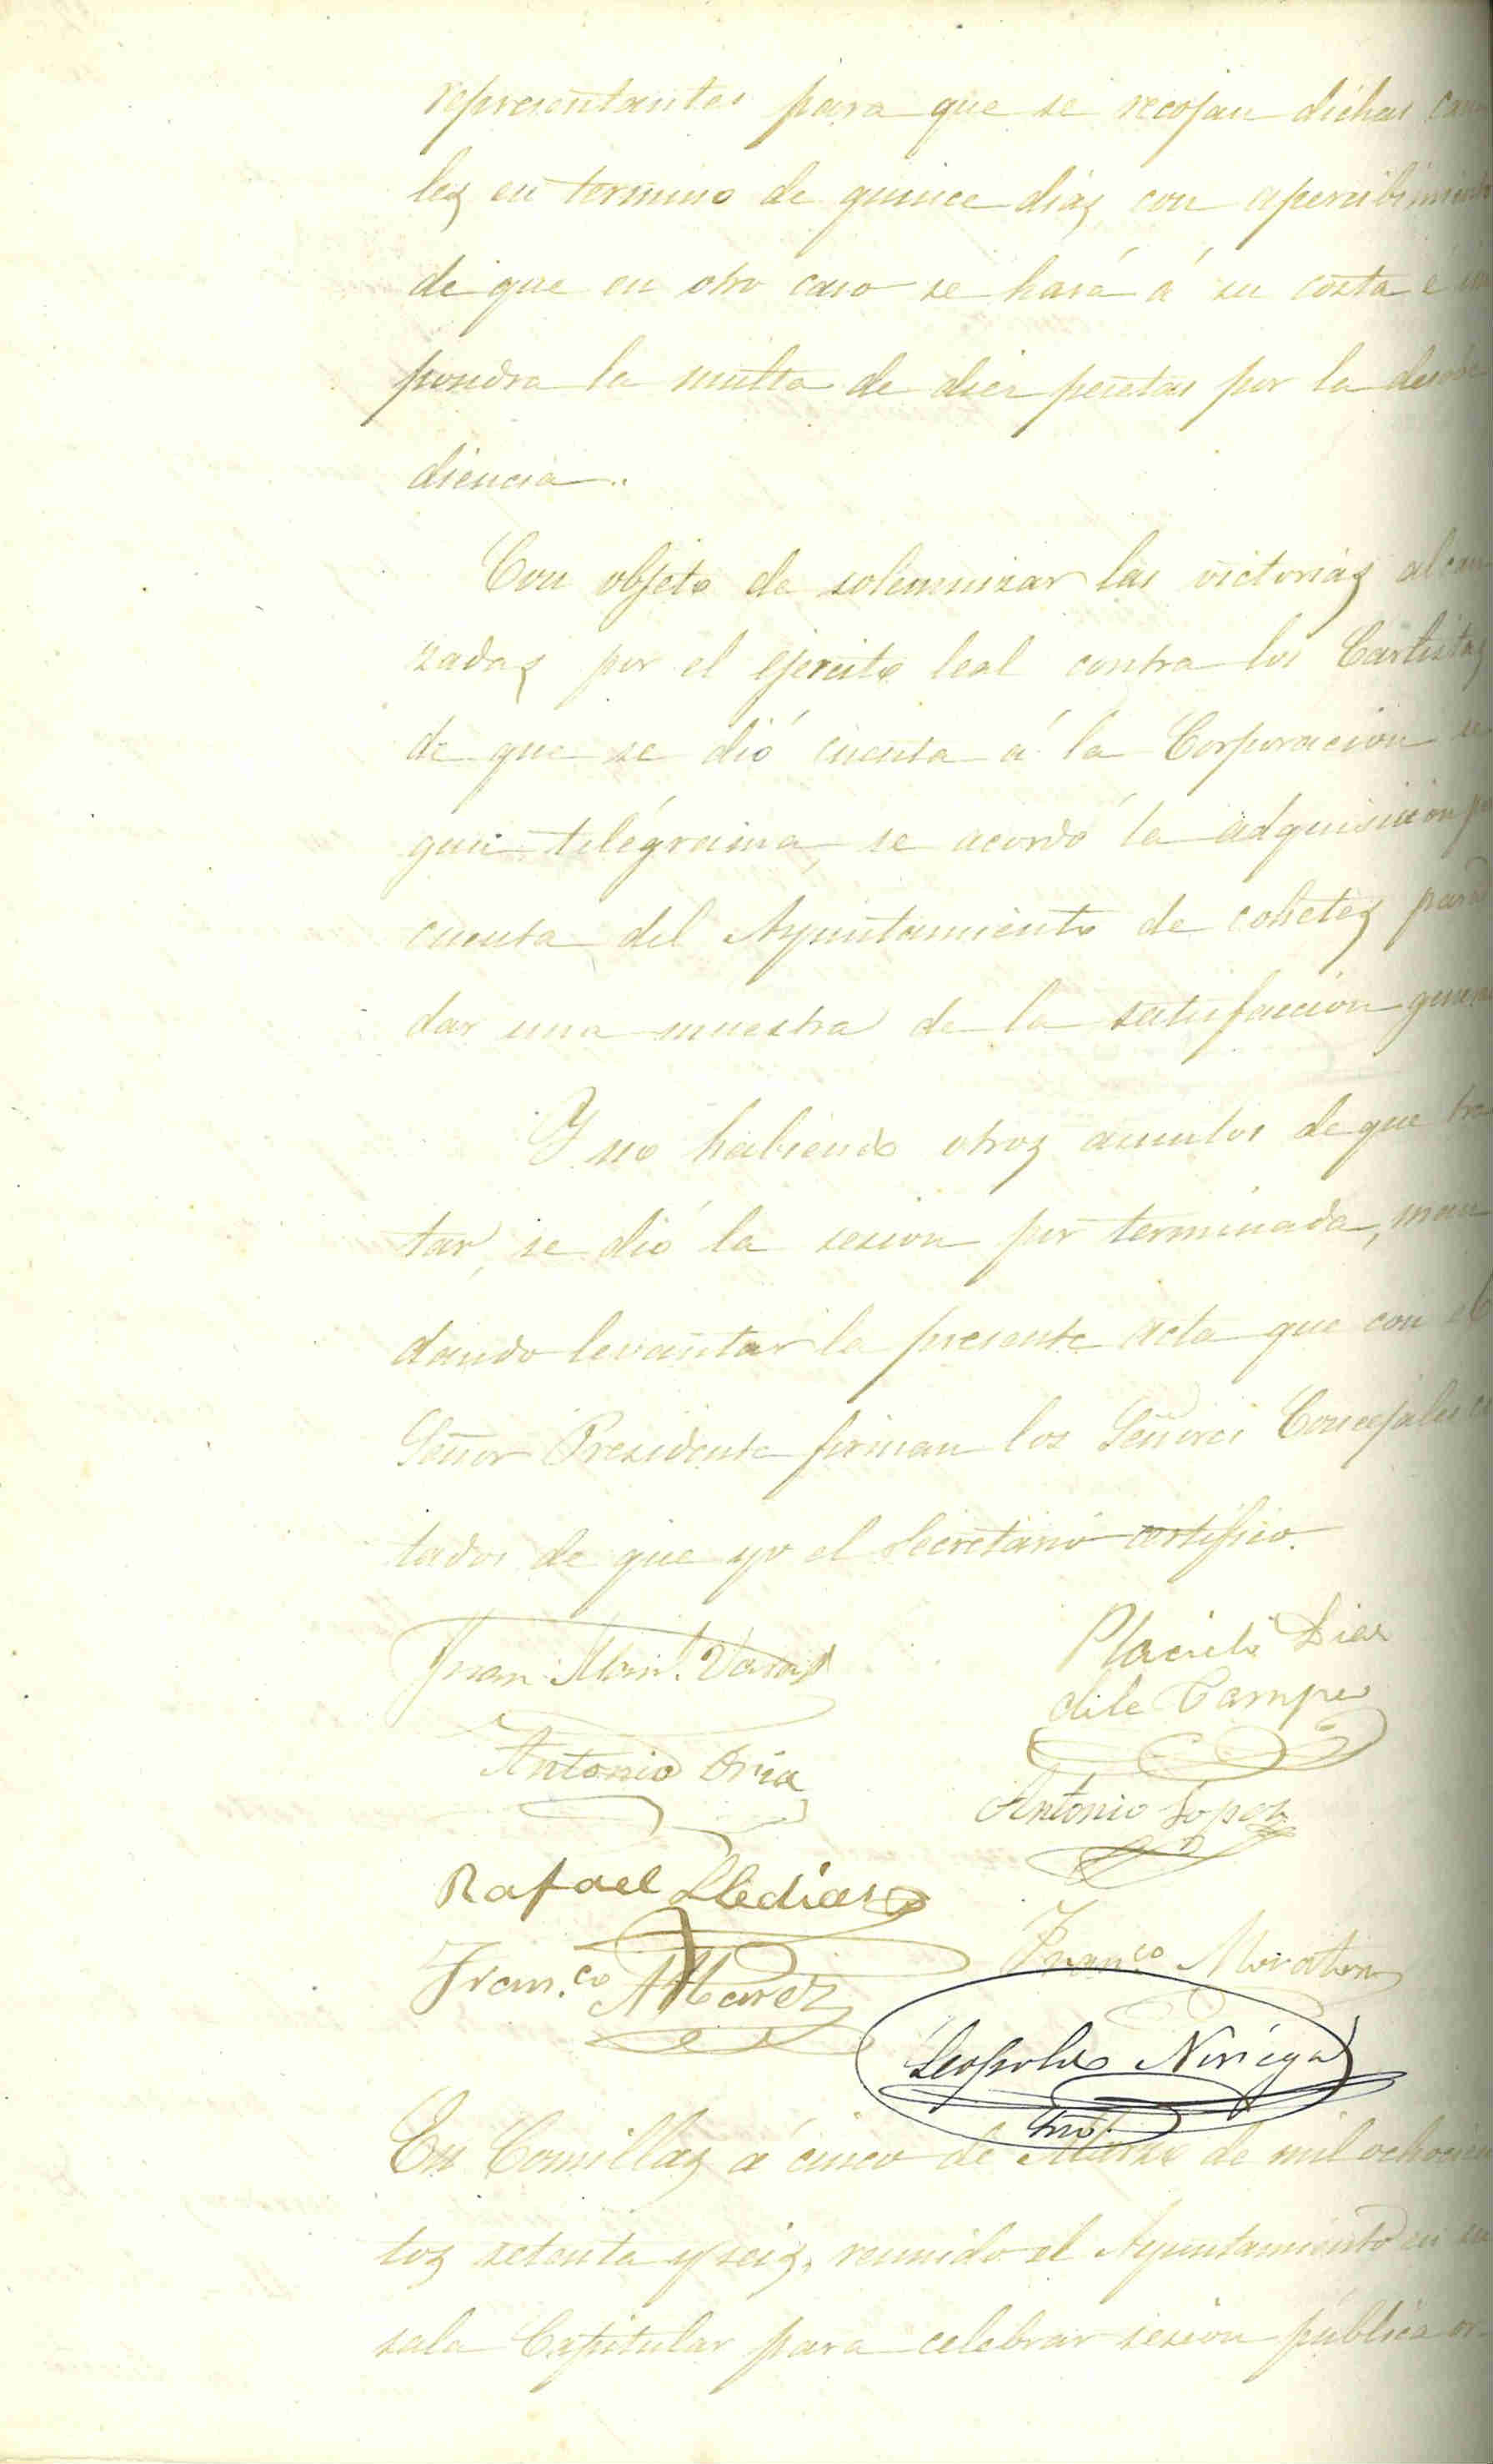 representantes para que se recojan dichas cana
les en termino de quince dias, con apercibimiento
de que en otro caso se hará á su costa é im
pondra la multa de diez pesetas por la desobe
diencia.
Con objeto de solemnizar las victorias alcan
zadas por el ejercito leal contra los Carlistas
de que se dió cuenta á la Corporacion se
gun telégrama, se acordó la adquisicion por
cuenta del Ayuntamiento de cohetes para
dar una muestra de la satisfaccion general
Y no habiendo otros asuntos de que tra
tar, se dió la sesion por terminada, man
dando levantar la presente acta que con el
Señor Presidente firman los Señores Concejales ci
tados de que yo el Secretario certifico.
Juan Man.l
Placido Diaz
de la Campa
Antonio Oria
Antonio Lopez
Rafael
Fran.co
Fran.co Alvarez
Leopoldo Noriega
Srio.
En Comillas á cinco de Marzo de mil ochocien
tos setenta y seis, reunido el Ayuntamiento en su
sala Capitular para celebrar sesion pública or-